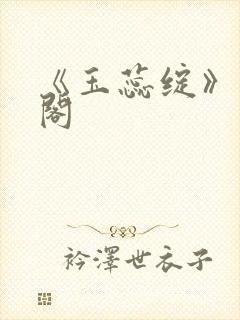 《玉蕊绽》
阁
衿澤世衣子